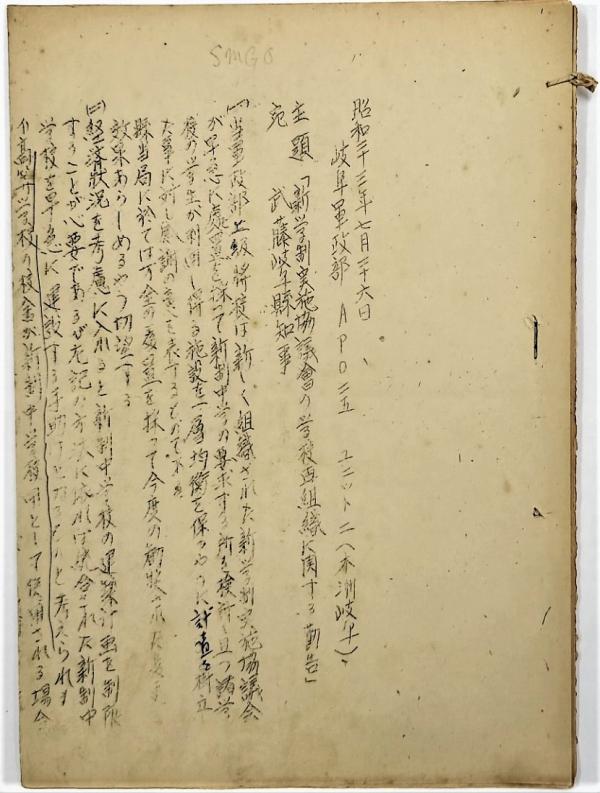 SMGO
昭和二十三年七月二十六日
岐阜軍政部 APO二五 ユニット二(本洲岐阜)、
主題「新学制実施協議會の学校再組織に関する勧告」
宛 武藤岐阜縣知事
(一)当軍政部上級将校は新しく組織された新学制実施協議会
が早急に處置を採って新制中学の要求する所を検討し且つ諸学
校の学生が利用し得る施設を一層均衡を保つやうに計画を樹立
た事に対し感謝の意を表するものである
縣当局に於ては万全の処置を採って今度の
効果あらしめるやう切望する
(二)経済状況を考慮に入れると新制中学校の建築計画を制限
することが必要であるが左記の方法に依れば統合された新制中
学校を早急に建設する手助けとなるものと考えられる
イ高等学校の校舎が新制中学校用として使用される場合